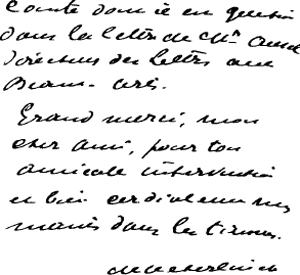 comte donné en question
dans la lettre de Mr
directeur des Lettres aux
Beaux-Arts.
Grand merci, mon
cher ami, pour ton
amicale intervention
et bien cordialement
mains dans les tiennes.